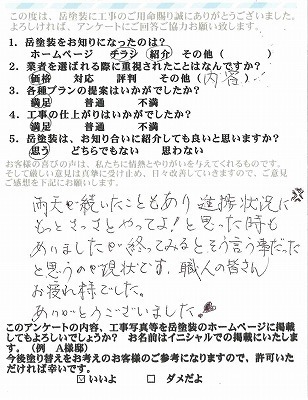 この度は、岳塗装に工事のご用命賜り誠にありがとうございました。
よろしければ、アンケートにご回答ご協力お願い致します。
1. 岳塗装をお知りになったのは?
ホームページ チラシ 紹介 その他 ( )
2. 業者を選ばれる際に重視されたことはなんですか?
価格 対応 評判 その他 (内容)
3. 各種プランの提案はいかがでしたか?
満足 普通 不満
4. 工事の仕上がりはいかがでしたか?
満足 普通 不満
5. 岳塗装は、お知り合いに紹介しても良いと思いますか?
思う どちらでもない 思わない
お客様の喜びの声は、私たちに情熱とやりがいを与えてくれるものです。
そして厳しい意見は真摯に受け止め、日々改善していきますので、ご意見
ご感想を下記にお願いします。
雨天が続いたこともあり進捗状況に
もっとさっさとやってよ!と思った時も
ありましたが終ってみるとそう言う事だった
と思うのが現状です。職人の皆さん
お疲れ様でした。
ありがとうございました。
このアンケートの内容、工事写真等を岳塗装のホームページに掲載
してもよろしいでしょうか? お名前はイニシャルでの掲載にいたし
ます。(例 A様邸)
今後塗り替えをお考えのお客様のご参考になりますので、許可いた
だければ幸いです。
☑ いいよ □ ダメだよ